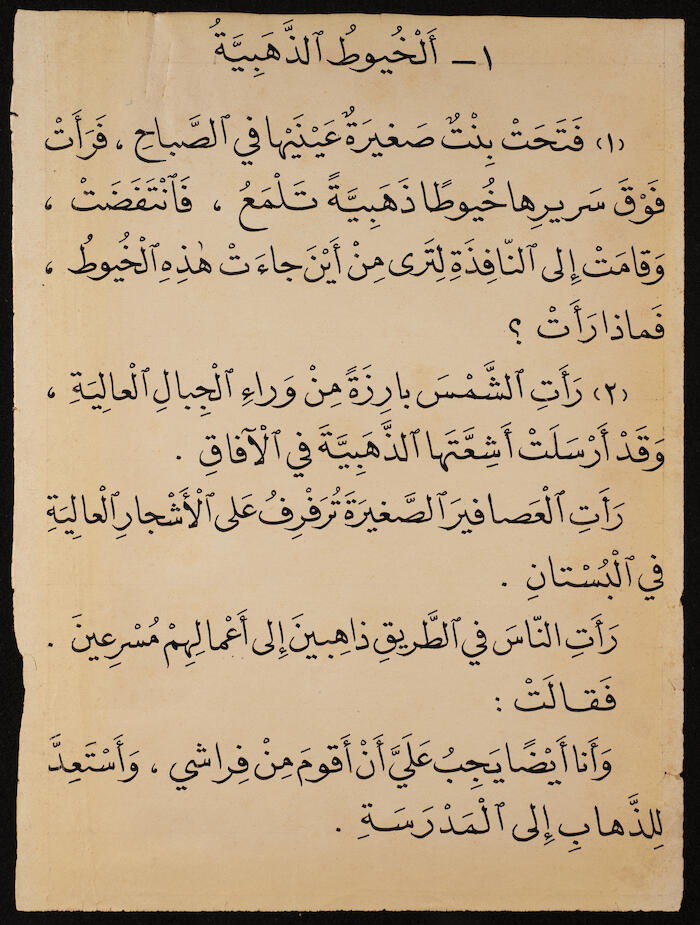 ١ – أَلْخُيوطُ ٱلذَّهَبِيَّةُ
(١) فَتَحَتْ بِنْتٌ صَغيرَةٌ عَيْنَيْها في ٱلصَّباحِ ، فَرَأَتْ
فَوْقَ سَريرِها خُيوطًا ذَهَبِيَّةً تَلْمَعُ ، فَٱنْتَفَضَتْ ،
وَقامَتْ إِلى ٱلنّافِذَةِ لِتَرى مِنْ أَيْنَ جاءَتْ هٰذِهِ ٱلْخُيوطُ ،
فَماذا رَأَتْ ؟
(٢) رَأَتِ ٱلشَّمْسَ بارِزَةً مِنْ وَراءِ ٱلْجِبالِ ٱلْعالِيَةِ ،
وَقَدْ أَرْسَلَتْ أَشِعَّتَها ٱلذَّهَبِيَّةَ في ٱلْآفاقِ .
رَأَتِ ٱلْعَصافيرَ ٱلصَّغيرَةَ تُرَفْرِفُ عَلى ٱلْأَشْجارِ ٱلْعالِيَةِ
في ٱلْبُسْتانِ .
رَأَتِ ٱلنّاسَ في ٱلطَّريقِ ذاهِبينَ إِلى أَعْمالِهِمْ مُسْرِعينَ .
فَقالَتْ :
وَأَنا أَيْضًا يَجِبُ عَلَيَّ أَنْ أَقومَ مِنْ فِراشي ، وَأَسْتَعِدَّ
لِلذَّهابِ إِلى ٱلْمَدْرَسَةِ .